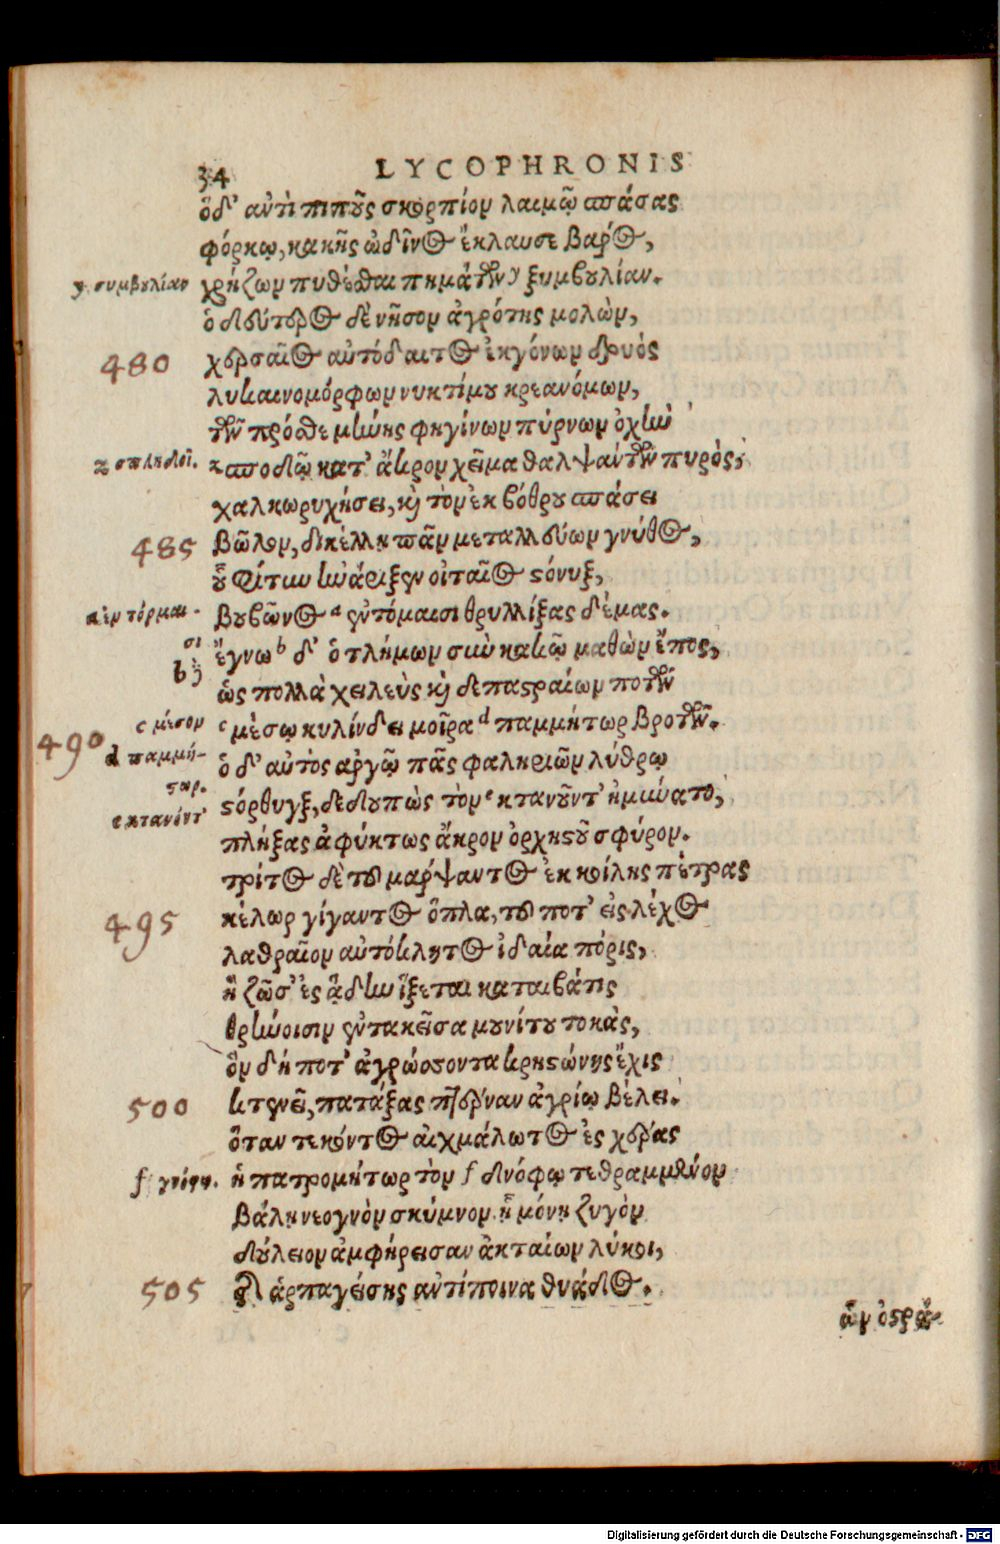 34 LYCOPHRONIS
ὁ δ' ἀντὶ πιποῦς σκορπίον λαιμῷ σπάσας
φόρκῳ, κακῆς ὠδῖνος ἔκλαυσε βάρος,
y συμβουλίαν χρῄζων πυθέσθαι πημάτων y ξυμβουλίαν.
ὁ δεύτερος δὲ νῆσον ἀγρότης μολὼν,
480 χερσαῖος αὐτόδαιτος ἐκγόνων δρυός
λυκαινομόρφων νυκτίμου κρεανόμων,
τῶν πρόσθε μήνης φηγίνων πύρνων ὀχὴν
z σπληδοῖ. z σποδῷ κατ' ἄκρον χεῖμα θαλψάντων πυρός,
χαλκωρυχήσει, καὶ τὸν ἐκ βόθρου σπάσει
485 βῶλον, δικέλλῃ πᾶν μεταλλεύων γνύθος,
οὗ φίτυν ἠνάριξεν οἰταῖος στόνυξ,
a ἐν τόρμαι- βουβῶνος a ἐν τόμαισι θρυλλίξας δέμας.
σι
b γ' ἔγνω b δ' ὁ τλήμων σὺν κακῷ μαθὼν ἔπος,
ὡς πολλὰ χειλεὺς καὶ δεπαστραίων ποτῶν
c μέσον 490 c μέσῳ κυλίνδει μοῖρα d παμμήτωρ βροτῶν.
d παμμή- ὁ δ' αὐτὸς ἀργῷ πᾶς φαληριῶν λύθρῳ
σταρ.
e κτανόντ' στόρθυγξ, δεδουπὼς τὸν e κτανοῦντ' ἠμύνατο,
πλήξας ἀφύκτως ἄκρον ὀρχηστοῦ σφύρον.
τρίτος δὲ τοῦ μάρψαντος ἐκ κοίλης πέτρας
495 κέλωρ γίγαντος ὅπλα, τοῦ ποτ' εἰς λέχος
λαθραῖον αὐτόκλητος ἰδαία πόρις,
ἡ ζῶσ' ἐς ᾅδην ἵξεται καταιβάτις
θρήνοισιν ἐντακεῖσα μουνίτου τοκὰς,
ὃν δή ποτ' ἀγρώσσοντα κρηστώνης ἔχις
500 κτενεῖ, πατάξας πτέρναν ἀγρίῳ βέλει.
ὅταν τεκόντος αἰχμάλωτος ἐς χέρας
f γνόφῳ. ἡ πατρομήτωρ τὸν f δνόφῳ τεθραμμένον
βάλῃ νεογνὸν σκύμνον. ᾗ μόνῃ ζυγὸν
δούλειον ἀμφήρεισαν ἀκταίων λύκοι,
505 τῆς ἁρπαγείσης ἀντίποινα θυάδος.
ὧν ὀστρά-
Digitalisierung gefördert durch die Deutsche Forschungsgemeinschaft - DFG